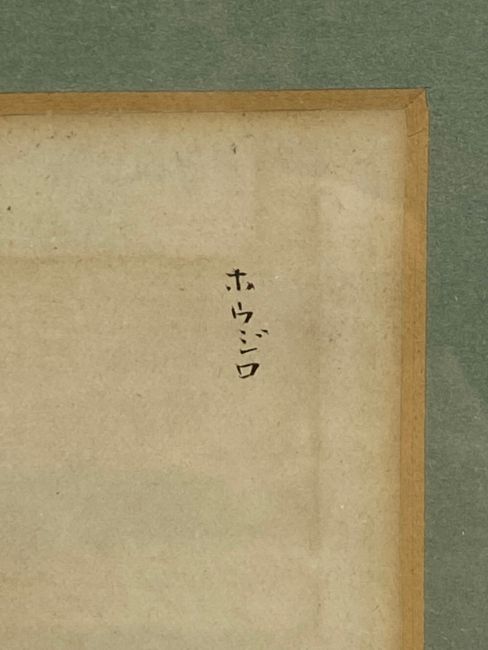 ホウジロ